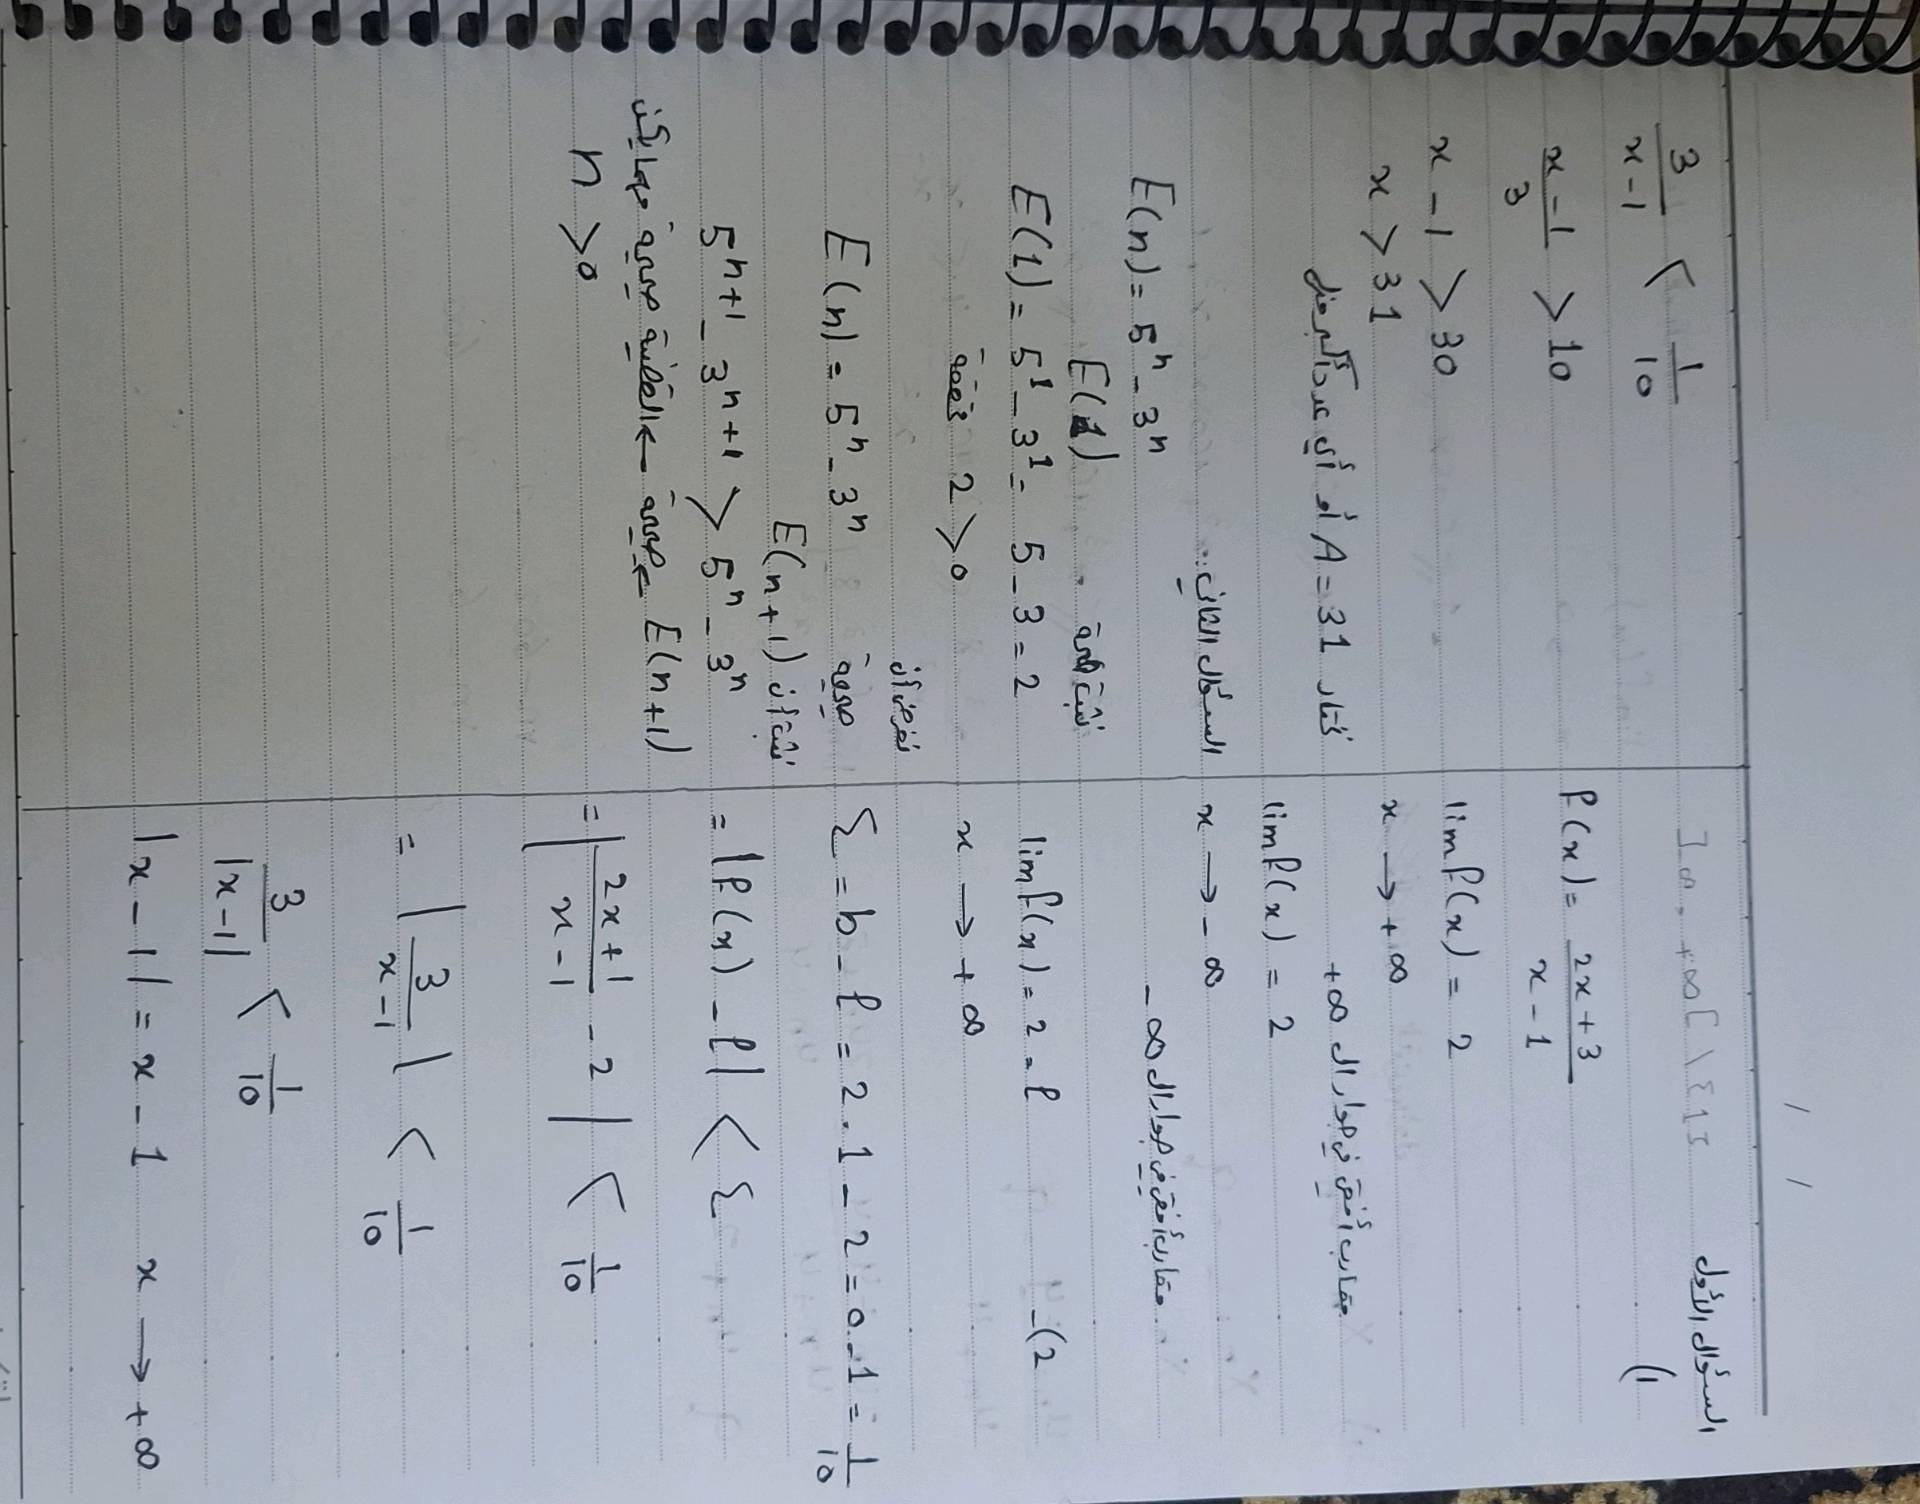 السؤال الأول
1)
]-∞, +∞[ \ {1}
f(x) = 2x+3 / x-1
lim f(x) = 2
x → +∞
مقارب أفقي في جوار ال +∞
lim f(x) = 2
x → -∞
مقارب أفقي في جوار ال -∞
2)-
lim f(x) = 2 = l
x → +∞
ξ = b - l = 2.1 - 2 = 0.1 = 1/10
= |f(x) - l| < ξ
= | 2x+1 / x-1 - 2 | < 1/10
= | 3 / x-1 | < 1/10
3 / |x-1| < 1/10
|x-1| = x-1   x → +∞
3 / x-1 < 1/10
x-1 / 3 > 10
x-1 > 30
x > 31
نختار A = 31 أو أي عدد أكبر منه
السؤال الثاني:
E(n) = 5ⁿ - 3ⁿ
نثبت صحة E(1)
E(1) = 5¹ - 3¹ = 5 - 3 = 2
2 > 0 محققة
نفرض أن
E(n) = 5ⁿ - 3ⁿ صحيحة
نثبت أن E(n+1)
5ⁿ⁺¹ - 3ⁿ⁺¹ > 5ⁿ - 3ⁿ
E(n+1) صحيحة ← القضية صحيحة مهما يكن
n > 0